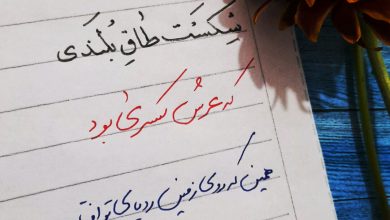 شِکَست طاقِ بُلَندی
که عرش کسریٰ بود
همین که روی زمین ردپای تو